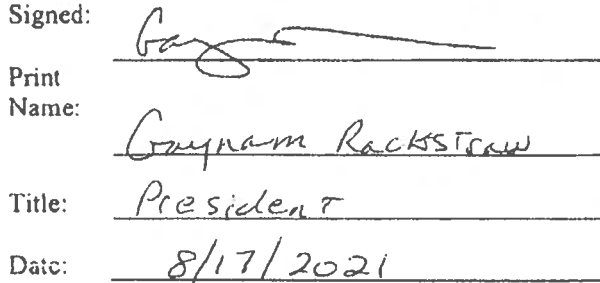 Signed:
Print
Name:
Gaynam Rackstraw
Title: President
Date: 8/17/2021